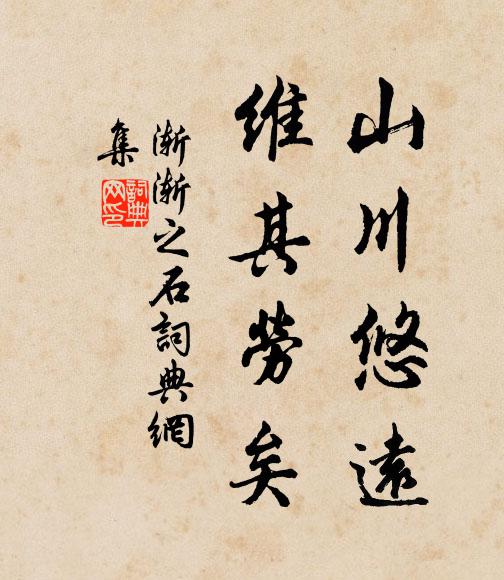 山川悠遠
維其勞矣
漸漸之石詞典網
集
詞典網印